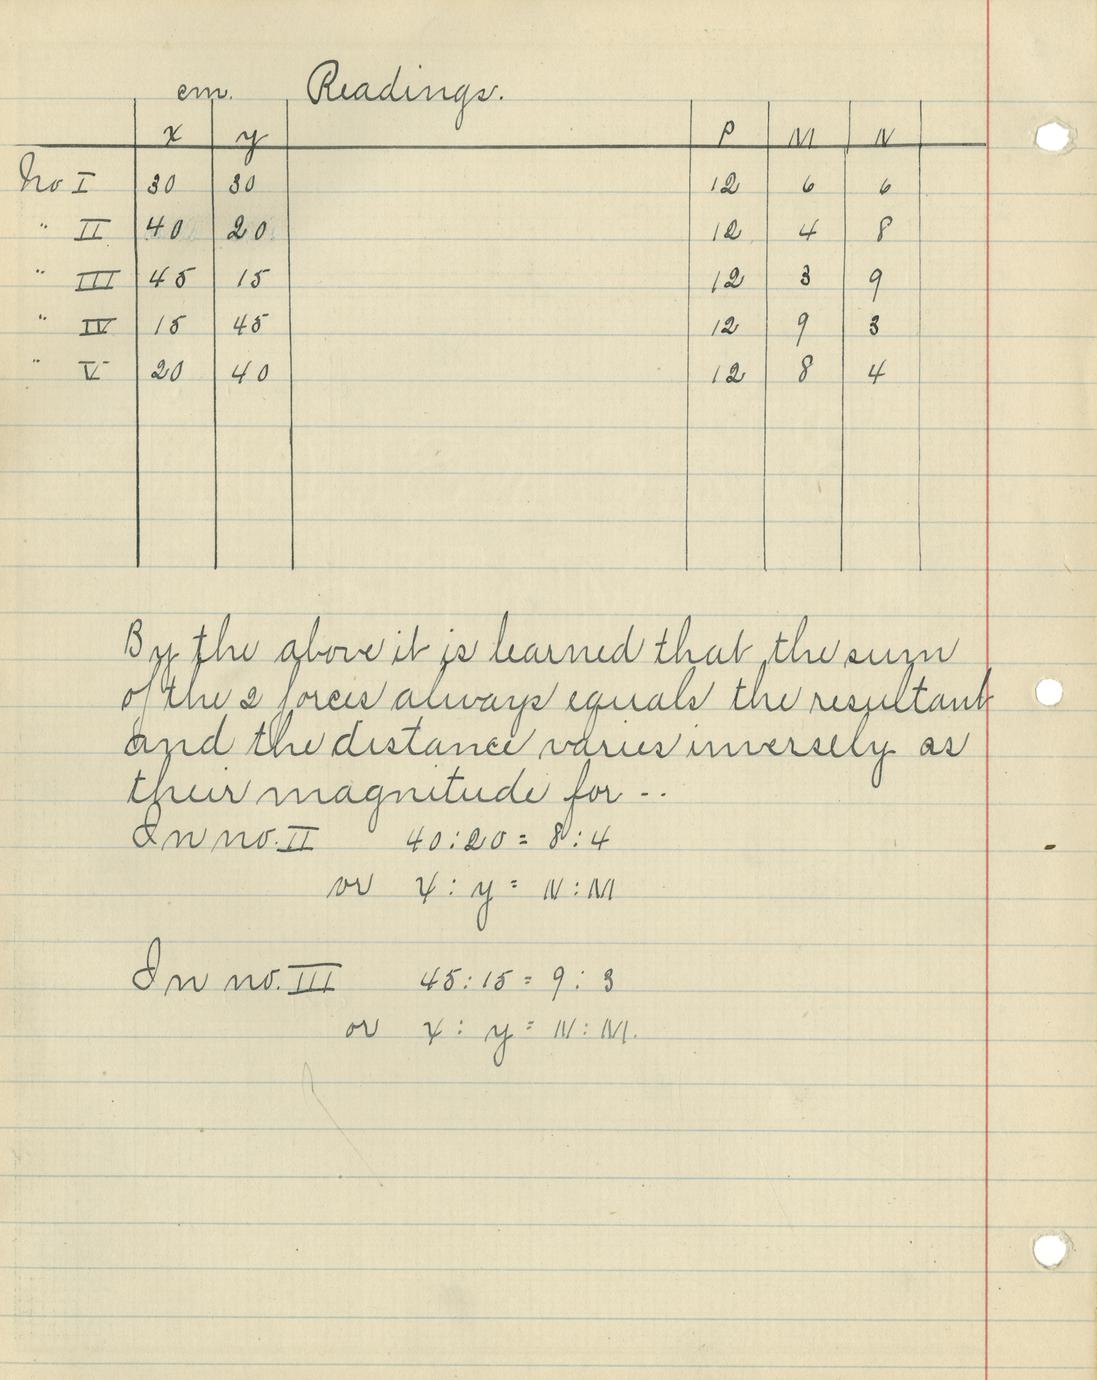 cm. Readings.
x y P M N
No I 30 30 12 6 6
" II 40 20 12 4 8
" III 45 15 12 3 9
" IV 15 45 12 9 3
" V 20 40 12 8 4
By the above it is learned that the sum
of the 2 forces always equals the resultant
and the distance varies inversely as
their magnitude for --
In no. II 40:20 = 8:4
or x : y = N : M
In no. III 45:15 = 9 : 3
or x : y = N : M.